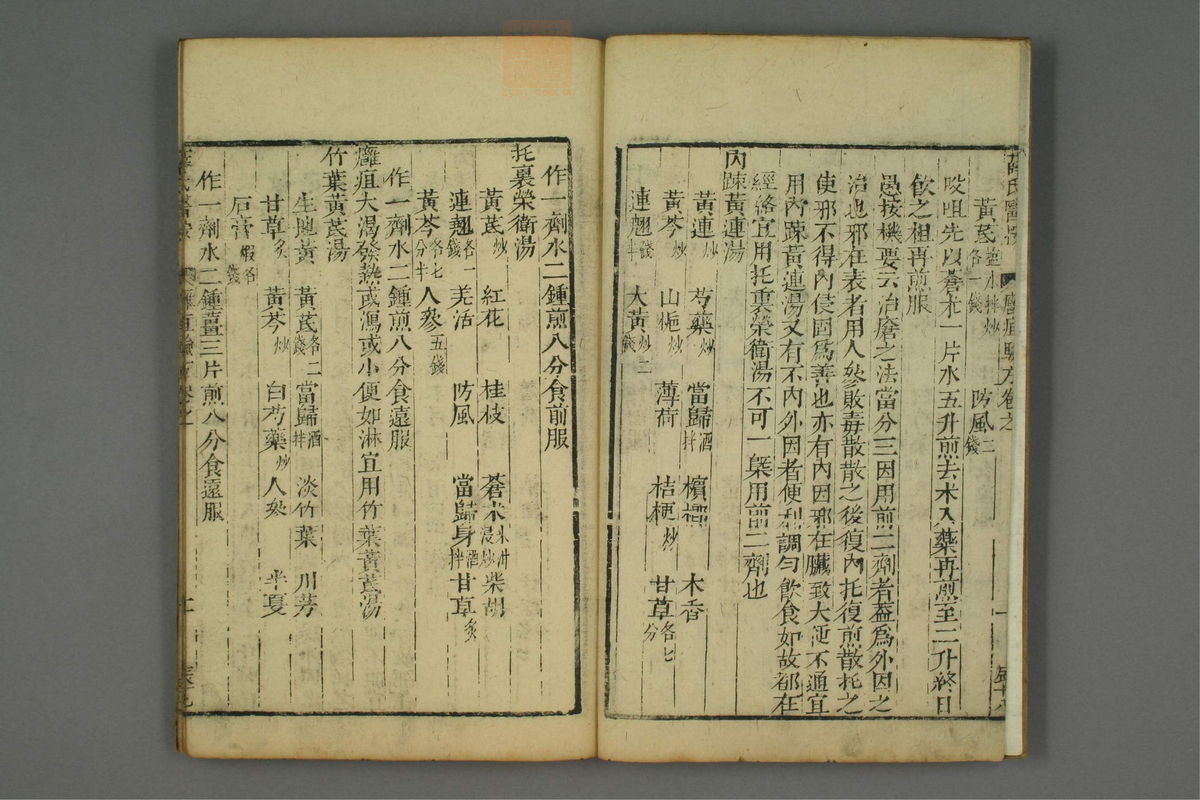 薛氏醫按 癰疽驗方卷之一
黃芪鹽水拌炒各一錢 防風二錢
㕮咀先以蒼朮一片水五升煎去朮入藥再煎至二升終日
飲之柤再煎服
愚按機要云治瘡之法當分三因用煎二劑者蓋爲外因之
治也邪在表者用人參敗毒散散之後復內托復煎散托之
使邪不得內侵因爲善也亦有內因邪在臟致大便不通宜
用內疎黃連湯又有不內外因者便利調勻飲食如故都在
經絡宜用托裏榮衛湯不可一槩用前二劑也
內疎黃連湯
黃連炒 芍藥炒 當歸酒拌 檳榔 木香
黃芩炒 山梔炒 薄荷 桔梗炒 甘草各七分
連翹錢半 大黃炒二錢
作一劑水二鍾煎八分食前服
托裏榮衛湯
黃芪炒 紅花 桂枝 蒼朮米泔浸炒 柴胡
連翹各一錢 羌活 防風 當歸身酒拌 甘草炙
黃芩各七分半 人參五錢
作一劑水二鍾煎八分食遠服
癰疽大渴發熱或瀉或小便如淋宜用竹葉黃芪湯
竹葉黃芪湯
生地黃 黃芪各二錢 當歸酒拌 淡竹葉 川芎
甘草炙 黃芩炒 白芍藥炒 人參 半夏
石膏煅各錢
作一劑水二鍾薑三片煎八分食遠服